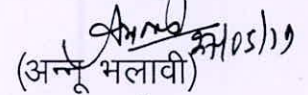 27/05/19
(अन्नू भलावी)